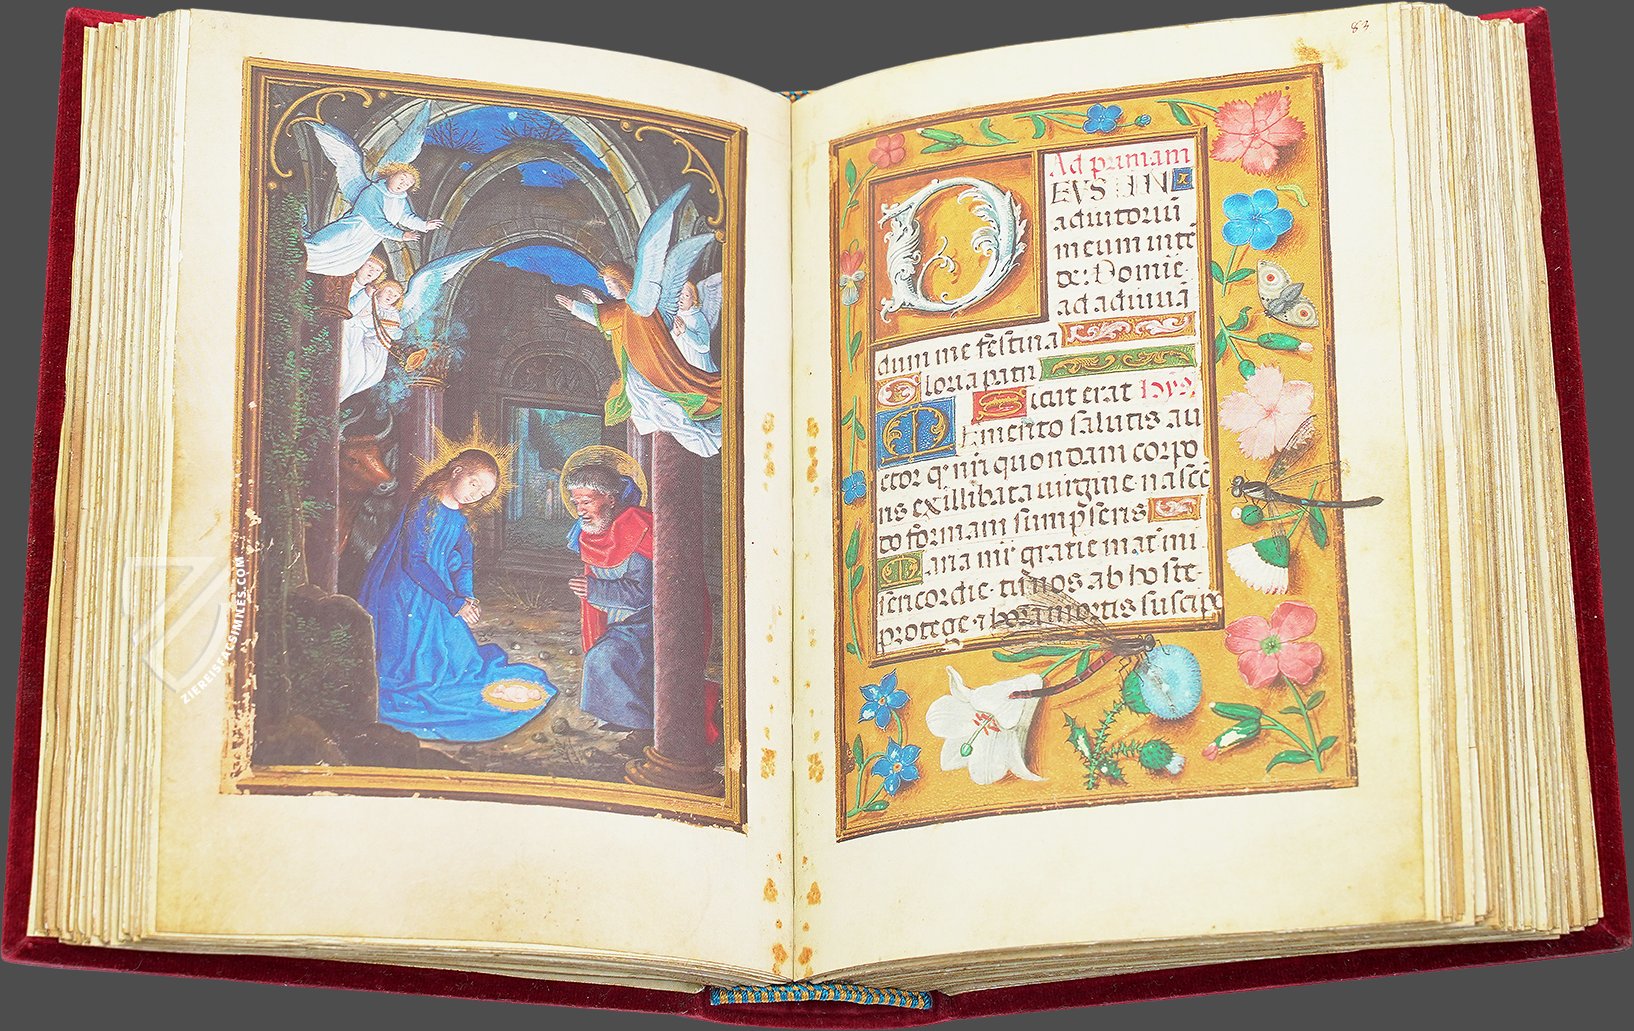 83
Ad primam
EVS IN
adiutoriū
meum intē
de: Domīe
ad adiuuā
dum me festina
Gloria patri
Sicut erat Hȳs,
Memento salutis au
ctor qͥ nr̄i quondam corpo
ris ex illibata uirgine nascē
do formam sumpseris
Maria mr̄ gratie mat̄ mi
sericordie tu nos ab hoste
protege ⁊ hora mortis suscipe
ZIEREISFACSIMILES.COM